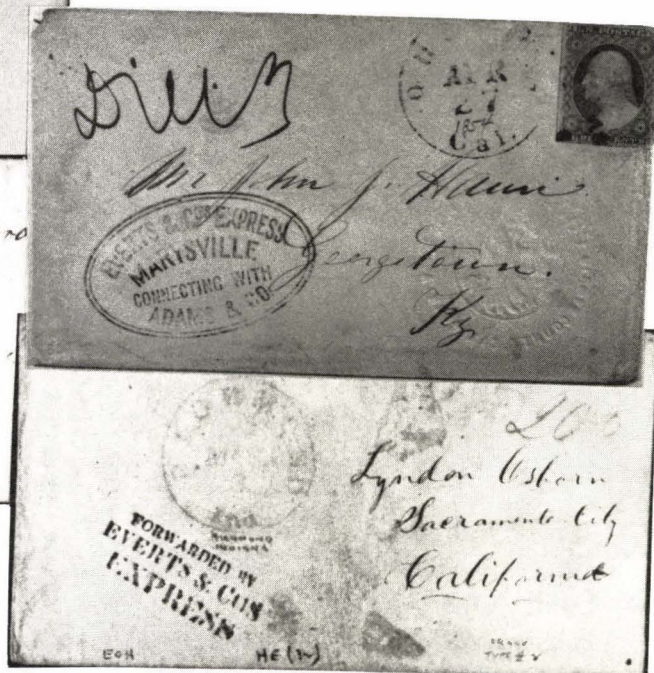 APR
27
1854
Cal.
Mr John J.
Georgetown.
Ky
EVERTS & COS EXPRESS
MARYSVILLE
CONNECTING WITH
ADAMS & CO
Lyndon Osborn
Sacramento City
California
Ind
RICHMOND
INDIANA
FORWARDED BY
EVERTS & COS
EXPRESS
EOH
HE (N)
TYPE # 2